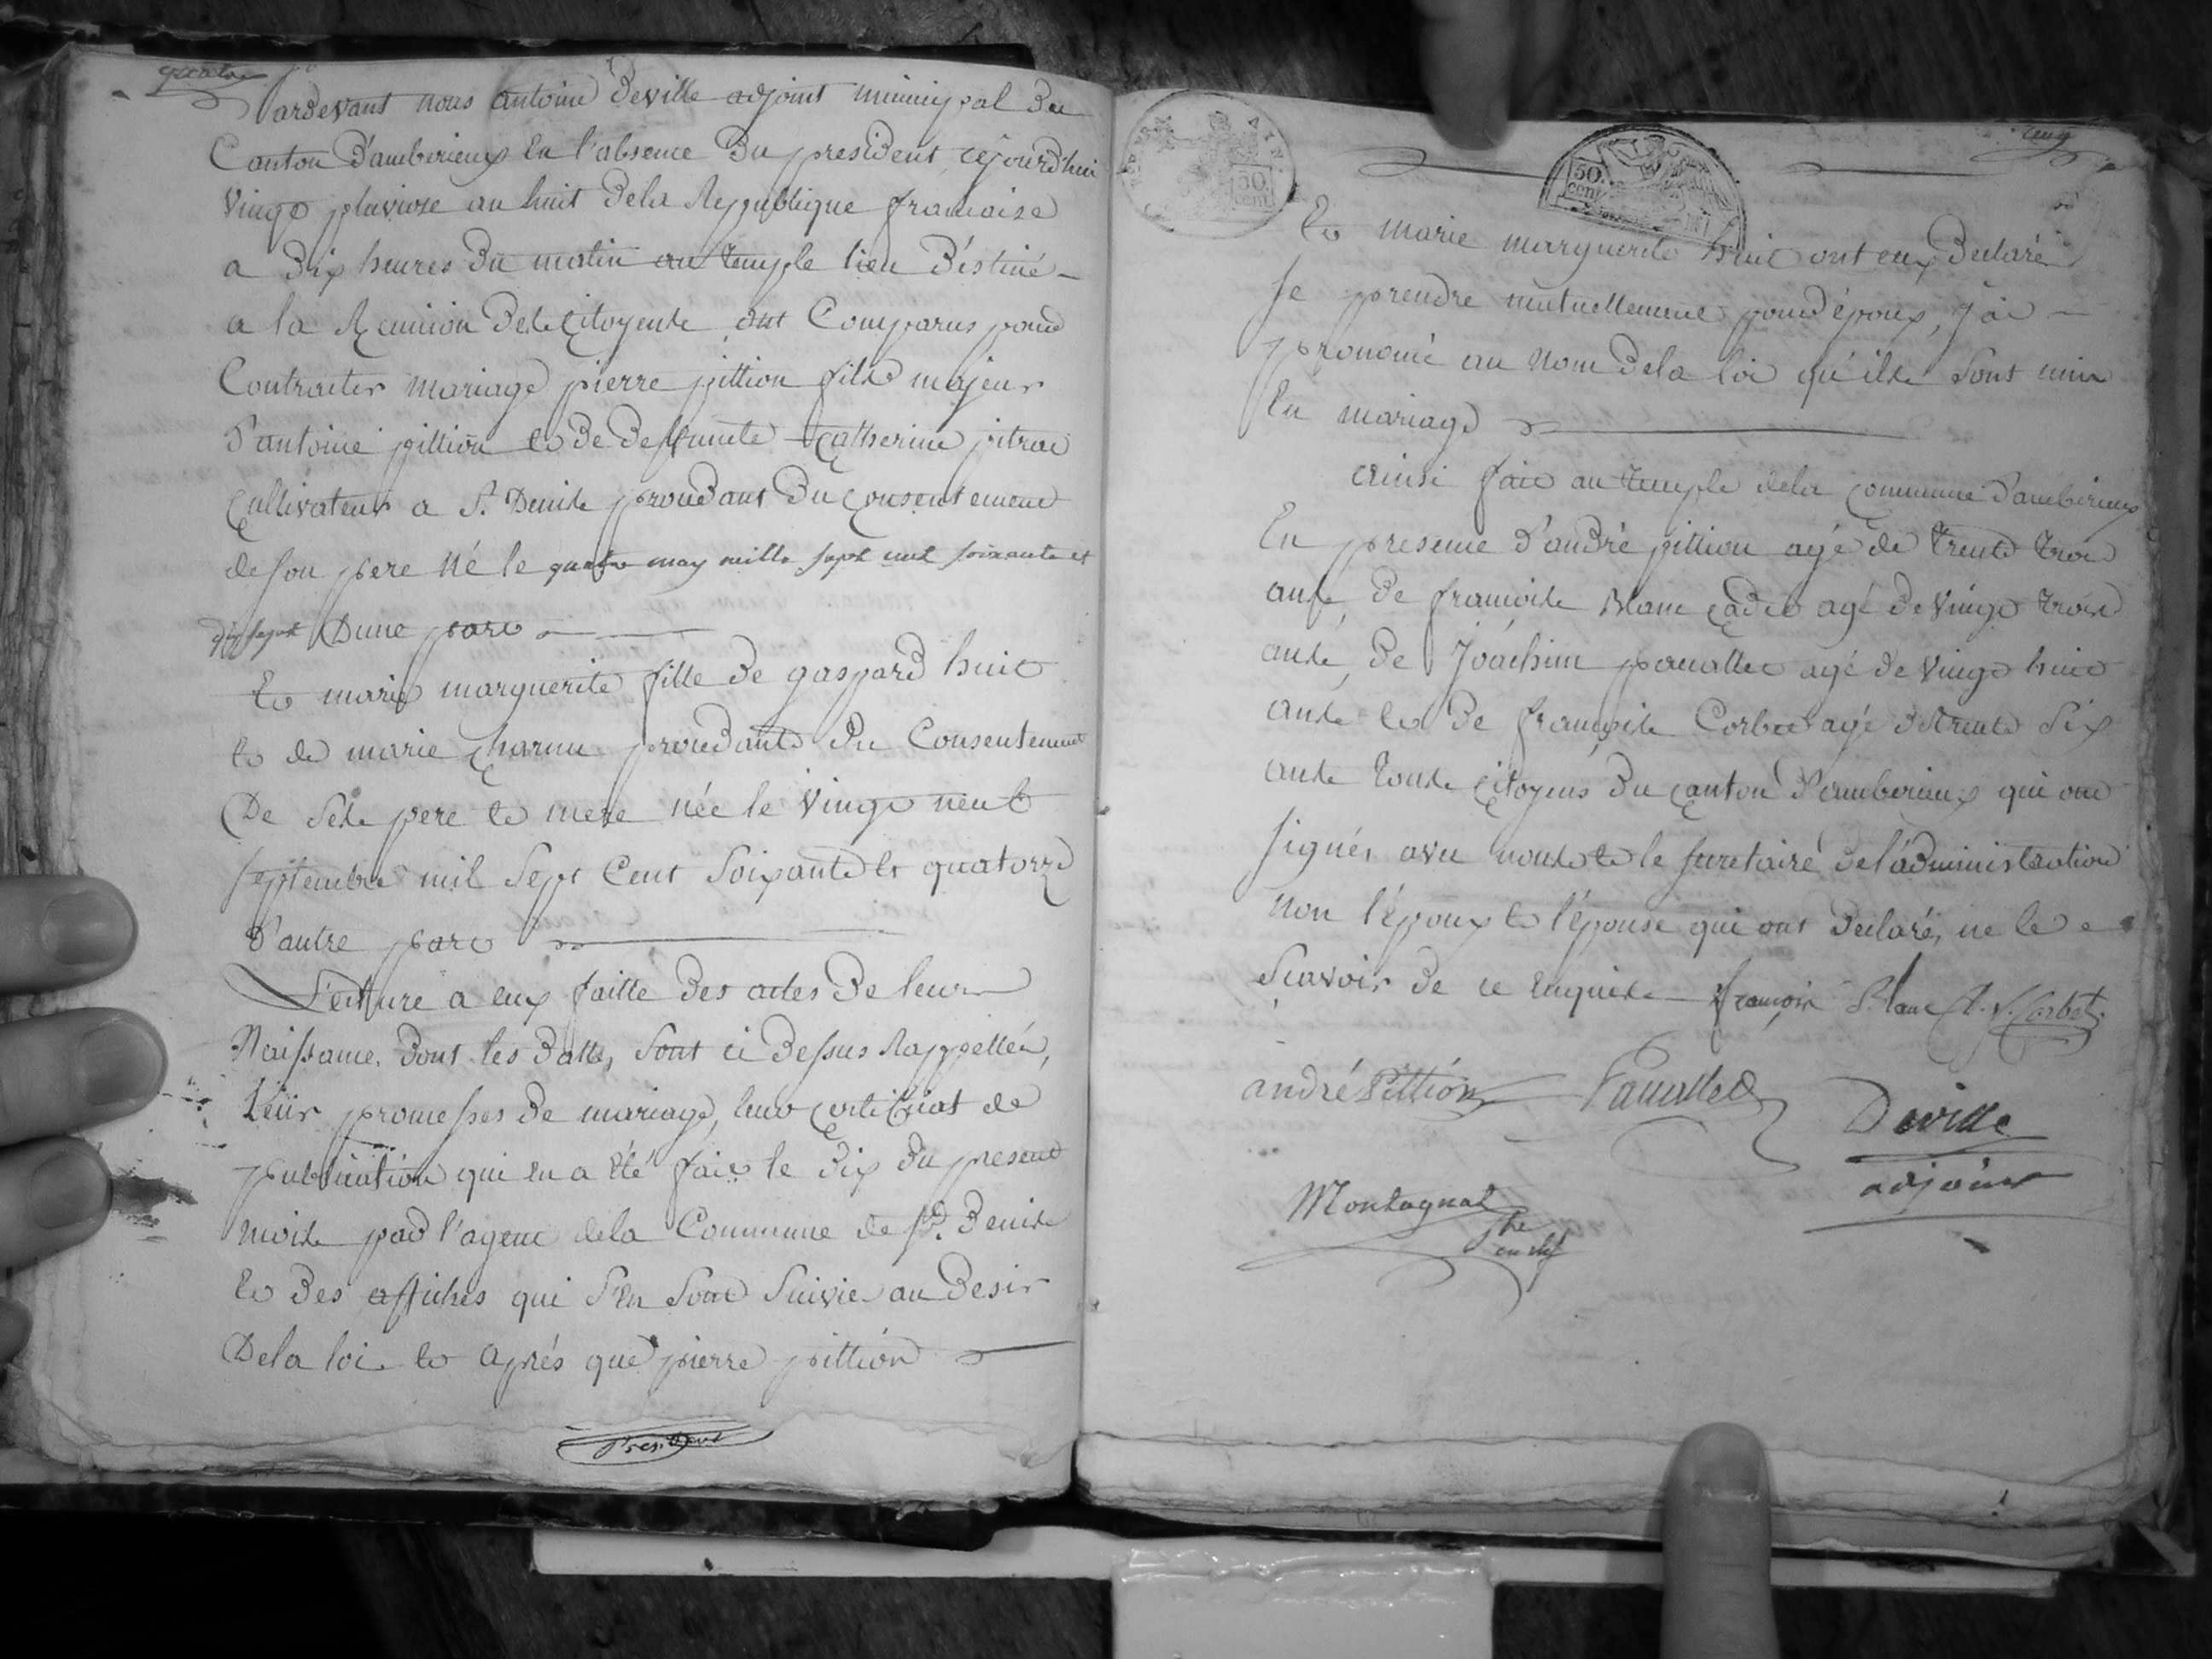 quatre
Pardevant nous antoine Deville adjoint municipal du
Canton d'amberieux En l'absence Du president, cejourd'hui
Vingt pluviose an huit De la Republique francoise
a dix heures du matin au temple lieu déstiné
a la Reunion Des Citoyens ont Comparus pour
Contracter mariage pierre pittion fils majeur
d'antoine pittion et de deffunte Catherine pitrat
Cultivateur a St. Denis proudant Du Consentement
de son pere Né le quatre may mille sept cent soixante et
dix sept Dune part
Et marie marguerite fille de gaspard huit
et de marie Charnu proudante Du Consentement
De Ses pere et mere née le Vingt neuf
septembre mil Sept Cent Soixante et quatorze
D'autre part
Lecture a eux faitte Des actes De leur
Naissance, Dont les Dattes, Sont ci Dessus Rappellés,
leur promesses De mariage, leur certificat de
publication qui en a été fait le dix du present
mois par l'agent de la Commune de St. Denis
et Des affiches qui S'En Sont Suivies au Desir
De la loi et Aprés que pierre pittion
President
cinq
50. cent
50. cent
Et marie marguerite huit ont eux Declaré
se prendre mutuellement pour époux, j'ai
prononcé au Nom De la loi qu'ils Sont unis
En mariage
ainsi fait au temple de la Commune d'amberieux
En presence d'andré pittion agé de trente trois
ans, De francois Blanc Cadet agé De Vingt trois
ans, De Joachim pauallet agé de Vingt huit
ans et De françois Corbet agé de trente Six
ans tous Citoyens Du Canton D'amberieux qui ont
signés avec nous et le secretaire de l'administration
Non l'époux et l'épouse qui ont Declarés ne le
Sçavoir de ce Enquis françois Blanc A. f. Corbet
andré Pittion Pauallet
Deville
adjoint
Montagnat
en chef